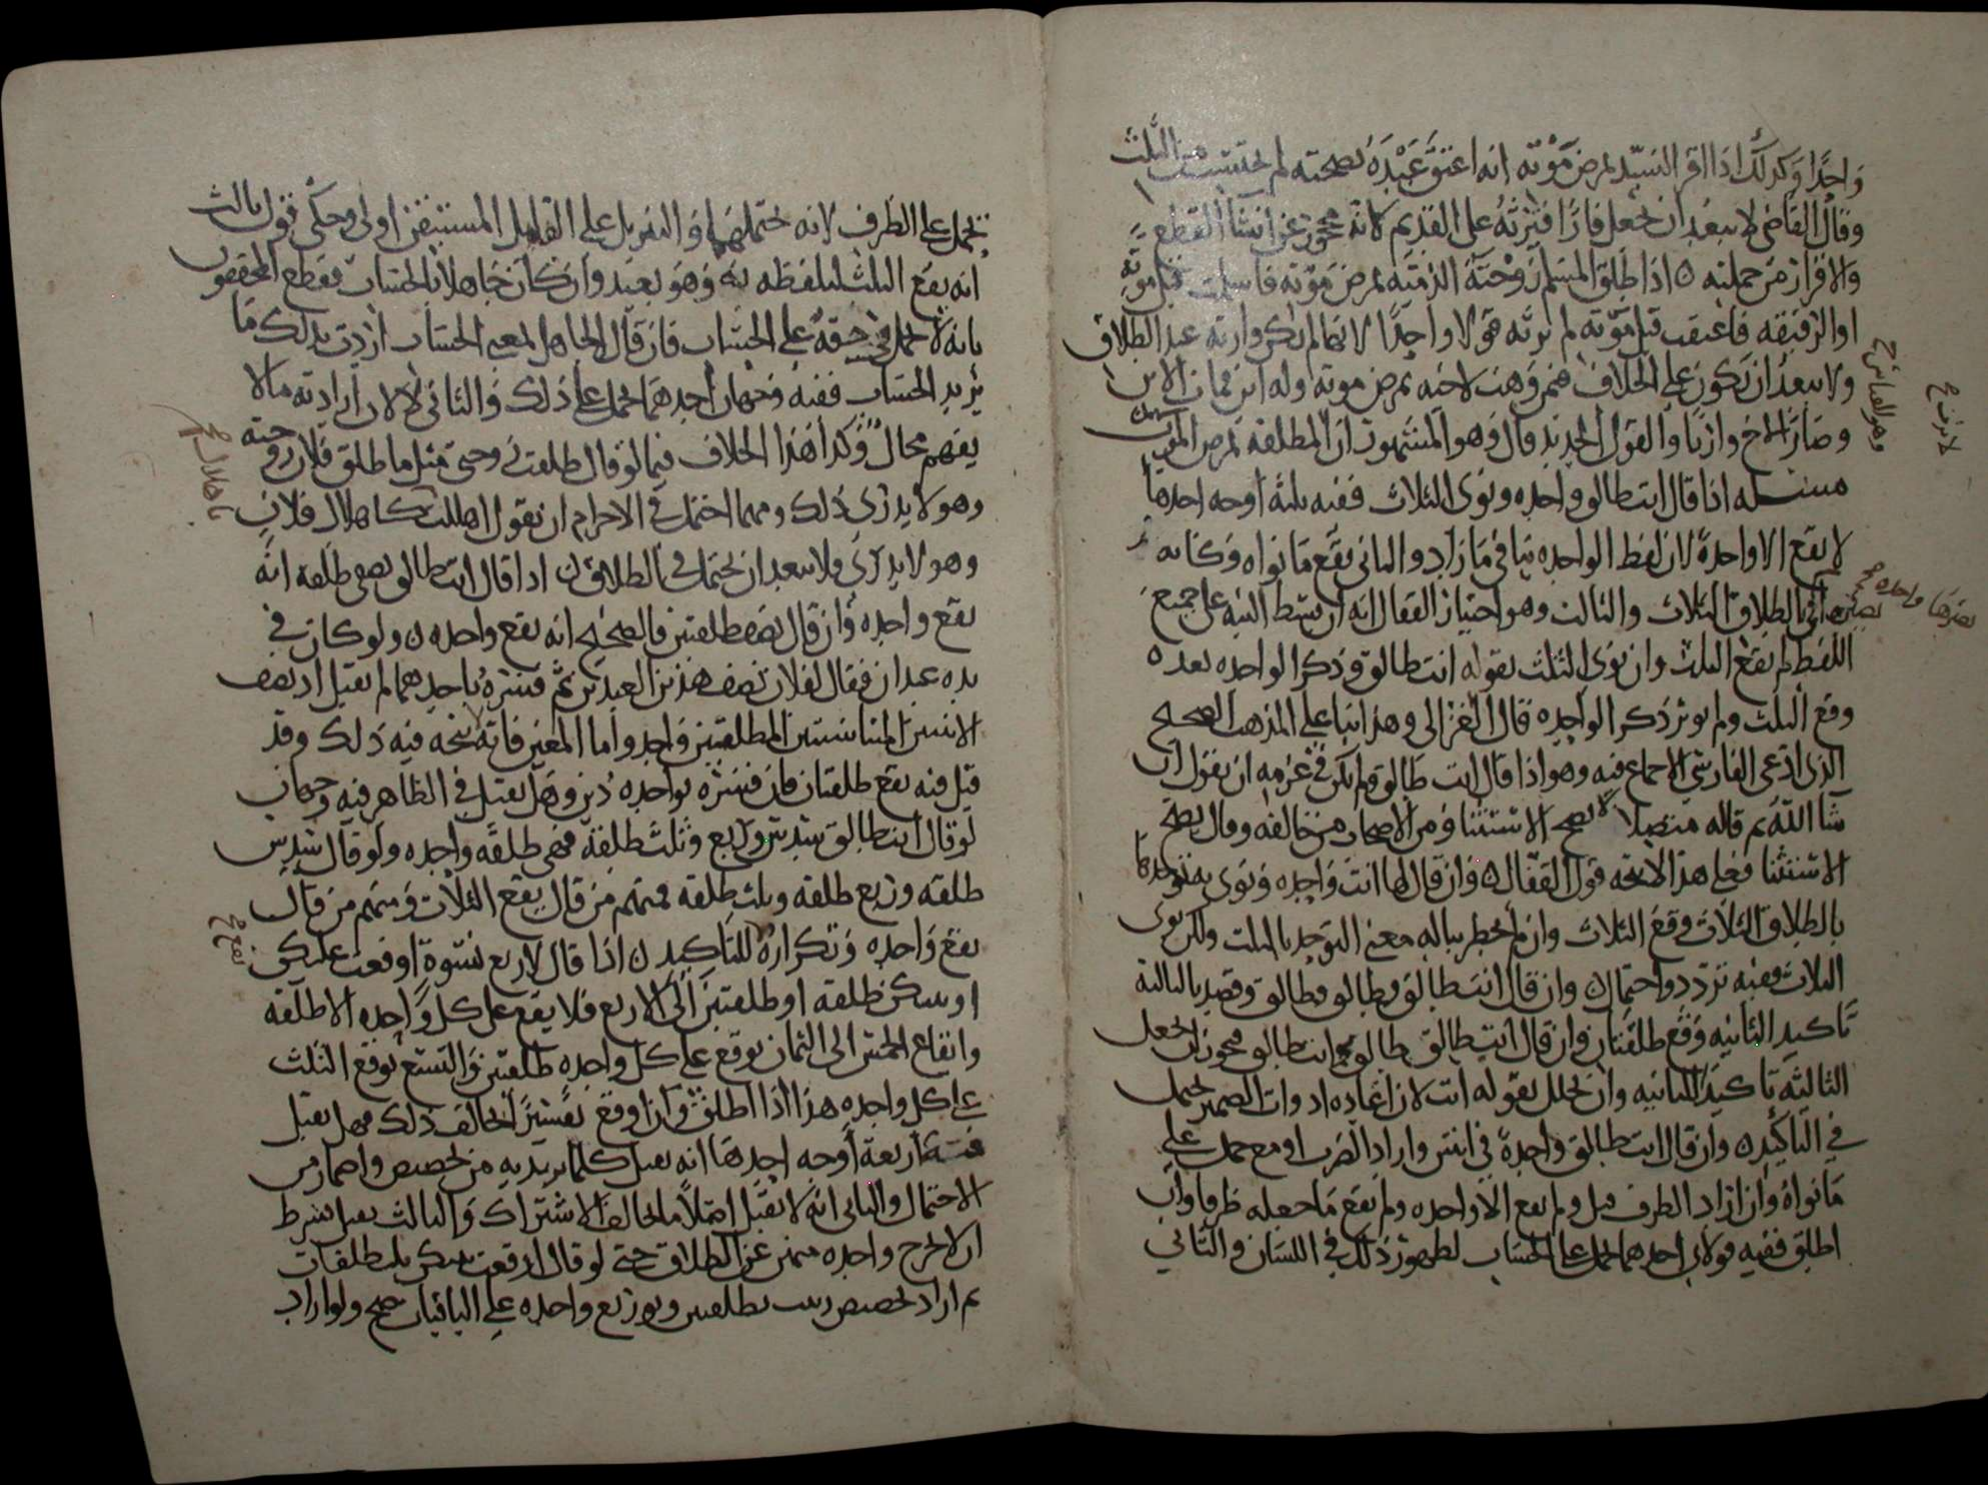 واحدا وكذلك اذا اقر السيد بمرض موته انه اعتق عبده بصحته لم يحتسب من الثلث
وقال القاضي لا يبعد ان نجعل فارا فترثه على القديم لانه محجور عن انشا القطع
والاقرار من حملته ه اذا طلق المسلم زوجته الذمية بمرض موته فاسلمت قبل موته
او الرقيقه فاعتقت قبل موته لم ترثه قولا واحدا لانها لم تكن وارثه عند الطلاق
ولا يبعد ان تكون على الخلاف فيمن وهب لاخيه بمرض موته وله ابن فمات الابن
وصار الاخ وارثا والقول الجديد قال وهو المشهور ان المطلقة بمرض الموت
مسئله اذا قال انت طالق واحده ونوى الثلاث ففيه ثلثة اوجه احدها
لا يقع الا واحدة لان لفظ الواحده ينافي ما زاد والثاني يقع ما نواه وكانه
اي بالطلاق الثلاث والثالث وهو اختيار القفال انه ان بسط النيه على جميع
اللفظ لم يقع الثلث وان نوى الثلث بقوله انت طالق وذكر الواحده بعده
وقع الثلث ولم يوثر ذكر الواحده قال الغزالي وهذا بنا على المذهب الصحيح
الذي ادعى الفارسي الاجماع فيه وهو اذا قال انت طالق ولم يكن في عزمه ان يقول ان
شا الله ثم قاله متصلا لا يصح الاستثنا ومن الاصحاب من خالفه وقال يصح
الاستثنا فعلى هذا لا يتجه قول القفال ه وان قال لها انت واحده ونوى به توحدها
بالطلاق الثلاث وقع الثلاث وان لم يخطر بباله معنى التوحد بالثلث ولكن نوى
الثلاث ففيه تردد واحتمال وان قال انت طالق وطالق وطالق وقصد بالثالثة
تاكيد الثانيه وقع طلقتان وان قال انت طالق طالق انت طالق فيجوز ان يجعل
الثالثة تاكيد الثانيه وان تخلل بقوله انت لان اعاده ادوات الضمير يحتمل
في التاكيد ه وان قال انت طالق واحدة في اثنتين واراد الضرب او مع حمل على
ما نواه وان اراد الظرف قبل ولم يقع الا واحده ولم يقع ما جعله ظرفا وان
اطلق ففيه قولان احدهما يحمل على الحساب لظهور ذلك في اللسان والثاني
وهو القياس ح
لا ترث ح
واحده ح
يحمل على الظرف لانه يحتملهما والتنزيل على القليل المستيقن اولى وحكي قول ثالث
انه يقع الثلث لتلفظه به وهو بعيد وان كان جاهلا بالحساب فقطع المحققون
بانه لا يحمل في حقه على الحساب فان قال الجاهل بمعنى الحساب اردت بذلك ما
يريد الحساب ففيه وجهان احدهما يحمل على ذلك والثاني لا لان ارادته ما لا
يفهم محال وكذا هذا الخلاف فيما لو قال طلقت زوجتي مثل ما طلق فلان زوجته
وهو لا يدري ذلك ومهما احتمل في الاحرام ان يقول اهللت كاهلال فلان
وهو لا يدري ولا يبعد ان يحتمل في الطلاق ه اذا قال انت طالق نصف طلقة انه
يقع واحده وان قال نصف طلقتين فالصحيح انه يقع واحده ه ولو كان في
يده عبدان فقال لفلان نصف هذين العبدين ثم فسره باحدهما لم يقبل اذ نصف
الاثنين المتناسبتين المطلقتين واحد واما المعين فانه لا يتجه فيه ذلك وقد
قيل فيه يقع طلقتان فان فسره بواحده دين وهل يقبل في الظاهر فيه وجهان
لو قال انت طالق سدس وربع وثلث طلقة فهي طلقه واحده ولو قال سدس
طلقه وربع طلقه وثلث طلقه فمنهم من قال يقع الثلاث ومنهم من قال
يقع واحده وتكراره للتاكيد ه اذا قال لاربع نسوة اوقعت عليكن
او بينكن طلقه او طلقتين الى الاربع فلا يقع على كل واحده الا طلقه
وايقاع الخمس الى الثمان يوقع على كل واحده طلقتين والتسع يوقع الثلث
على كل واحده هذا اذا اطلق وان اوقع تفسيرا يخالف ذلك فهل يقبل
فيه اربعة اوجه احدها انه يقبل كلما يريد به من تخصيص واضمار من
الاحتمال والثاني انه لا يقبل اصلا ما يخالف الاشتراك والثالث يقبل بشرط
ان لا يخرج واحده منهن عن الطلاق حتى لو قال اوقعت بينكن ثلث طلقات
ثم اراد تخصيص زينب بطلقتين وتوزيع واحده على الباقيات صح ولو اراد
كاهلال ح